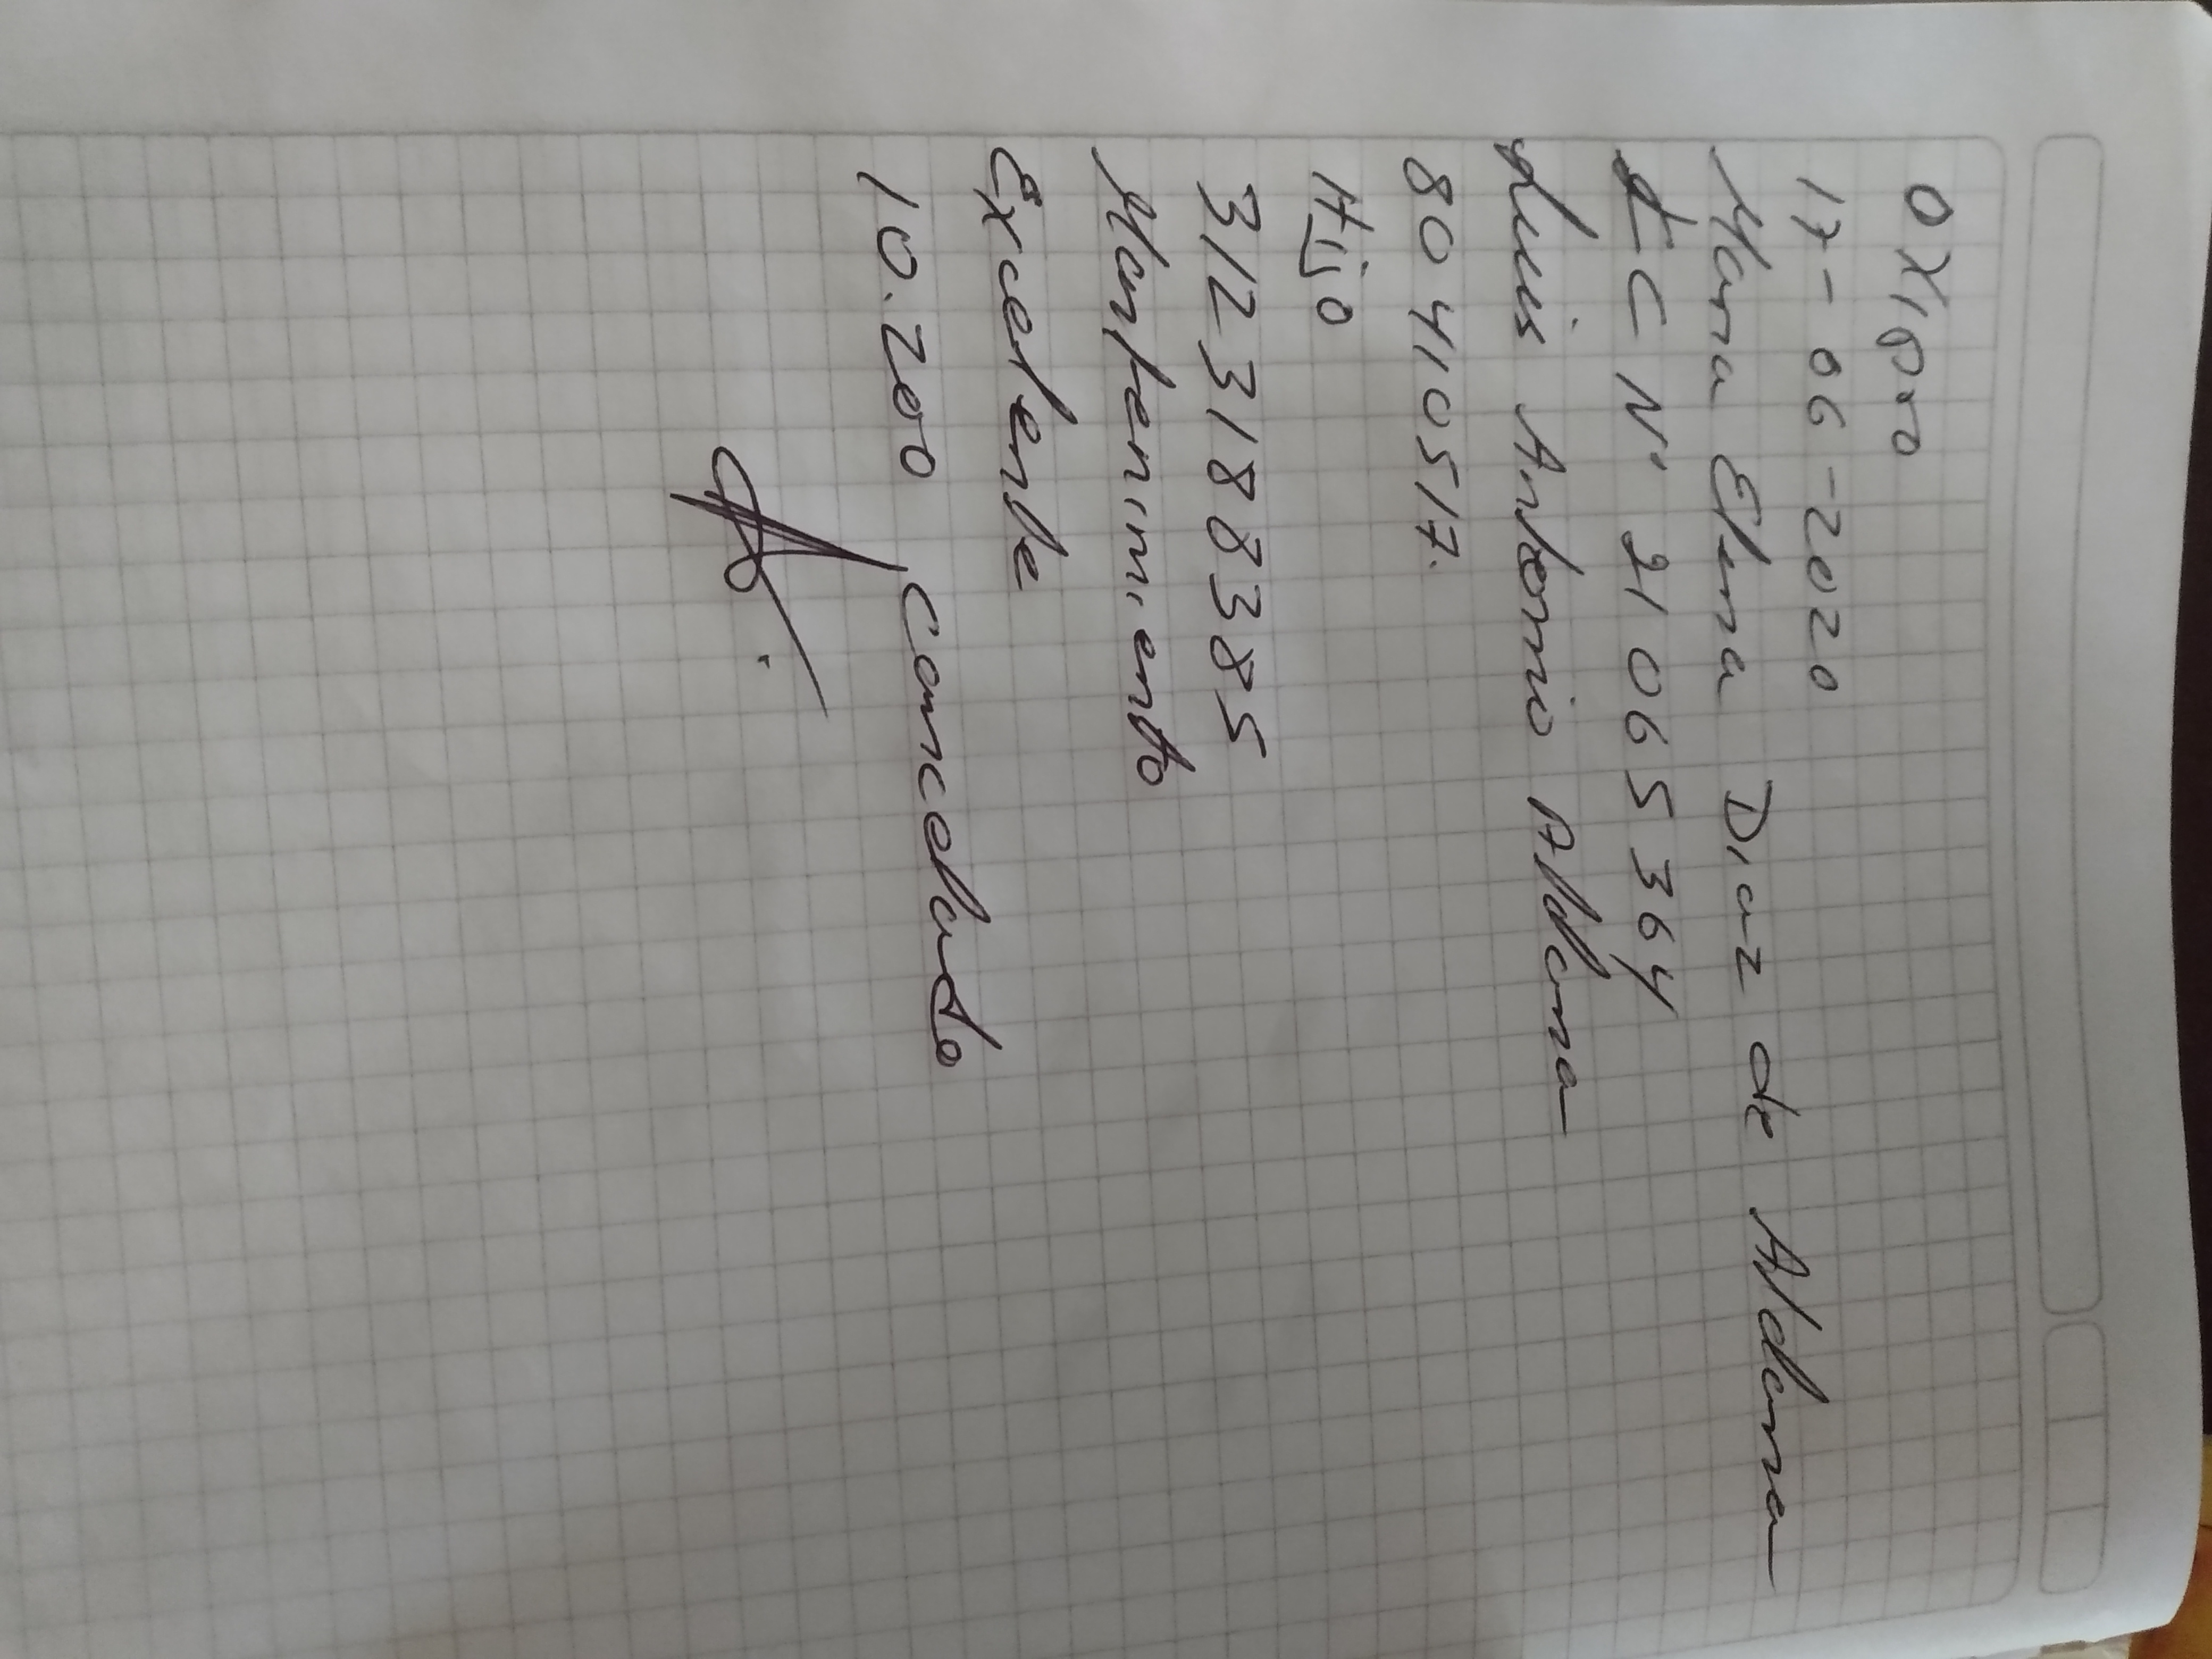 OXIPRO
17-06-2020
Maria Elena Diaz de Aldana
CC N° 21065364
Luis Antonio Aldana
804110517.
Hijo
3123188385
Mantenimiento
Excelente
10.200 Cancelado